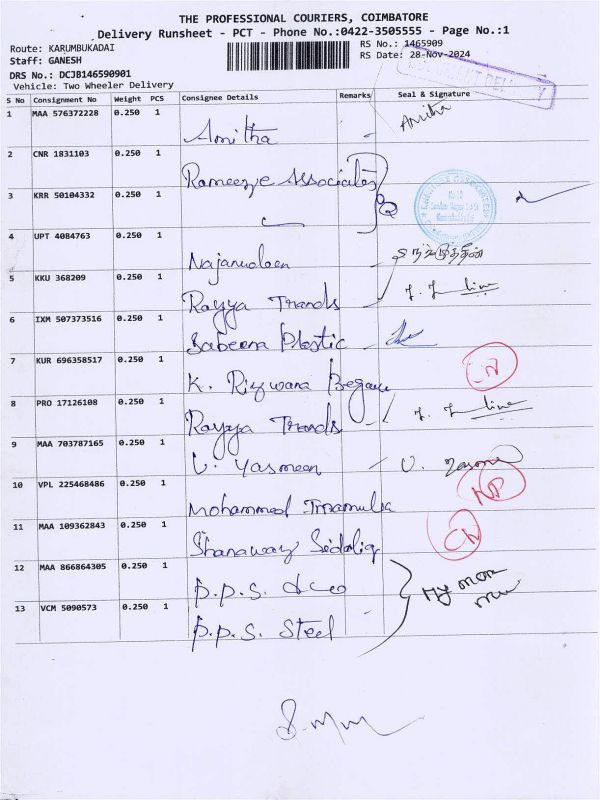 THE PROFESSIONAL COURIERS, COIMBATORE
Delivery Runsheet - PCT - Phone No.:0422-3505555 - Page No.:1
Route: KARUMBUKADAI
RS No.: 1465909
Staff: GANESH
RS Date: 28-Nov-2024
DRS No.: DCJB146590901
Vehicle: Two Wheeler Delivery
S No Consignment No Weight PCS Consignee Details Remarks Seal & Signature
1 MAA 576372228 0.250 1 Amitha Amitha
2 CNR 1831103 0.250 1 Rameeze Associates
3 KRR 50104332 0.250 1
4 UPT 4084763 0.250 1 Najamudeen
5 KKU 368209 0.250 1 Rayya Trands
6 IXM 507373516 0.250 1 Sabeena Plastic
7 KUR 696358517 0.250 1 K. Rizwana Begam
8 PRO 17126108 0.250 1 Rayya Trands
9 MAA 703787165 0.250 1 U. Yasmeen U.
10 VPL 225468486 0.250 1 Mohammed
11 MAA 109362843 0.250 1
12 MAA 866864305 0.250 1 P.P.S.
13 VCM 5090573 0.250 1 P.P.S. Steel